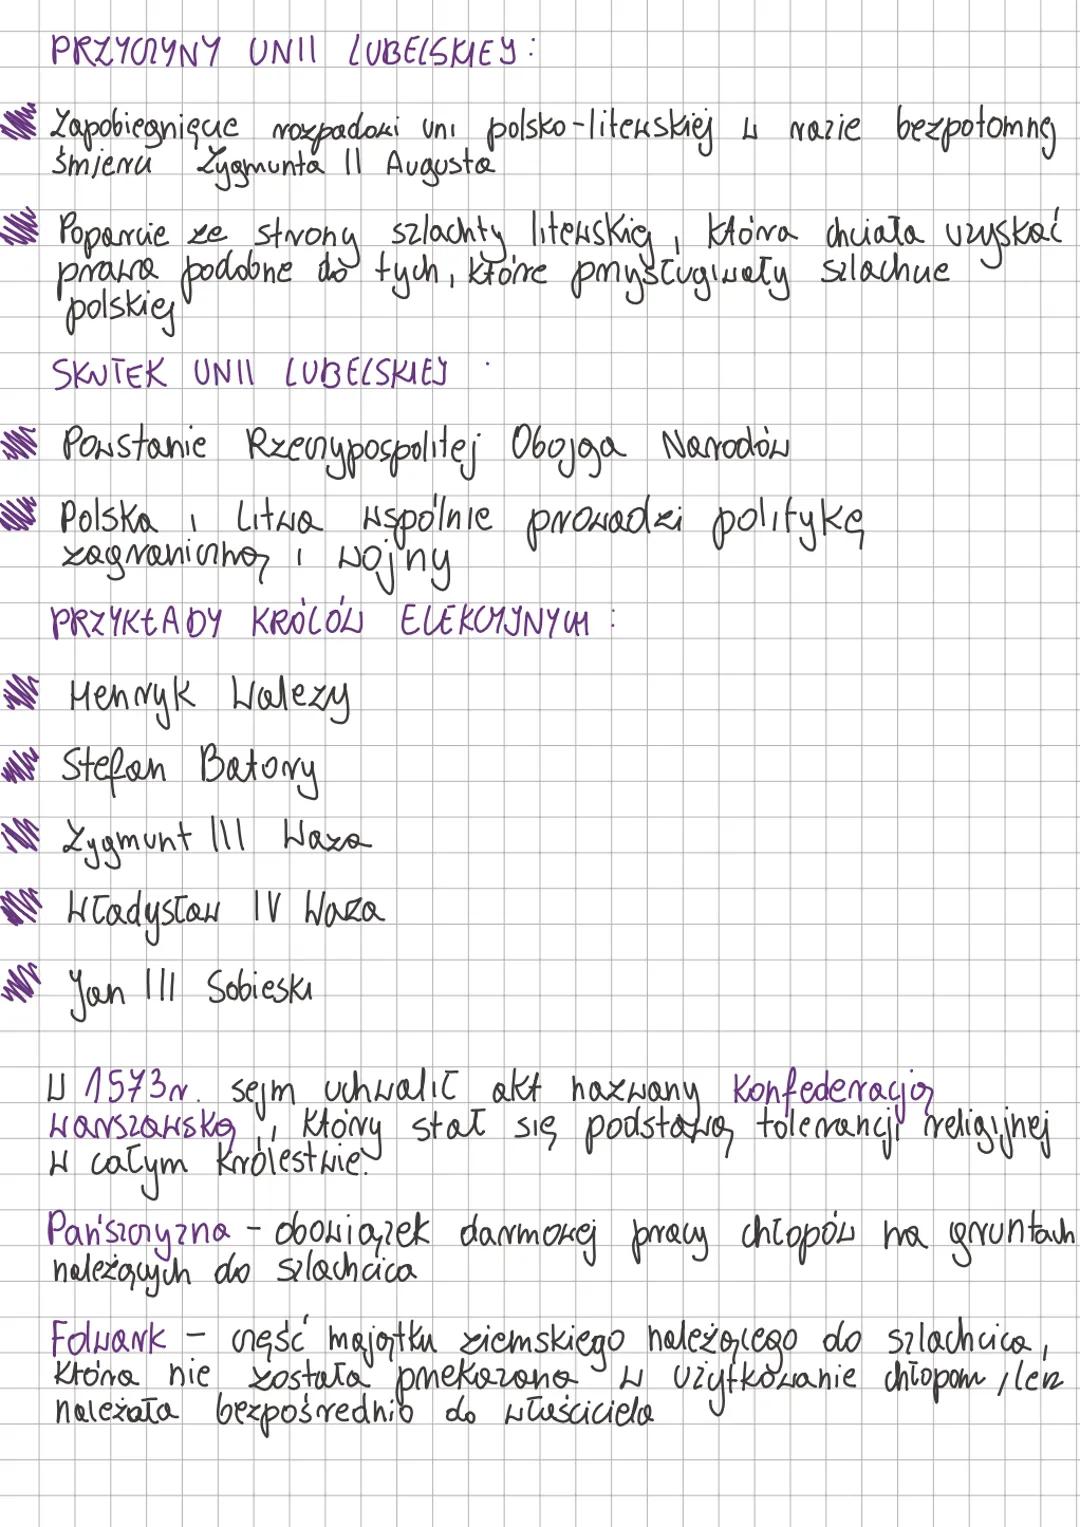 PRZYCZYNY UNII LUBELSKIEJ:
Zapobiegnięcie rozpadowi uni polsko-litewskiej w razie bezpotomnej
śmierci Zygmunta II Augusta
Poparcie ze strony szlachty litewskiej, która chciała uzyskać
prawa podobne do tych, które przysługiwały szlachcie
polskiej
SKUTEK UNII LUBELSKIEJ:
Powstanie Rzeczypospolitej Obojga Narodów
Polska i Litwa wspólnie prowadzi politykę
zagraniczną i wojny
PRZYKŁADY KRÓLÓW ELEKCYJNYCH:
Henryk Walezy
Stefan Batory
Zygmunt III Waza
Władysław IV Waza
Jan III Sobieski
W 1573r. sejm uchwalił akt nazwany Konfederacją
warszawską, który stał się podstawą tolerancji religijnej
w całym Królestwie.
Pańszczyzna - obowiązek darmowej pracy chłopów na gruntach
należących do szlachcica
Folwark - część majątku ziemskiego należącego do szlachcica,
która nie została przekazana w użytkowanie chłopom, lecz
należała bezpośrednio do właściciela